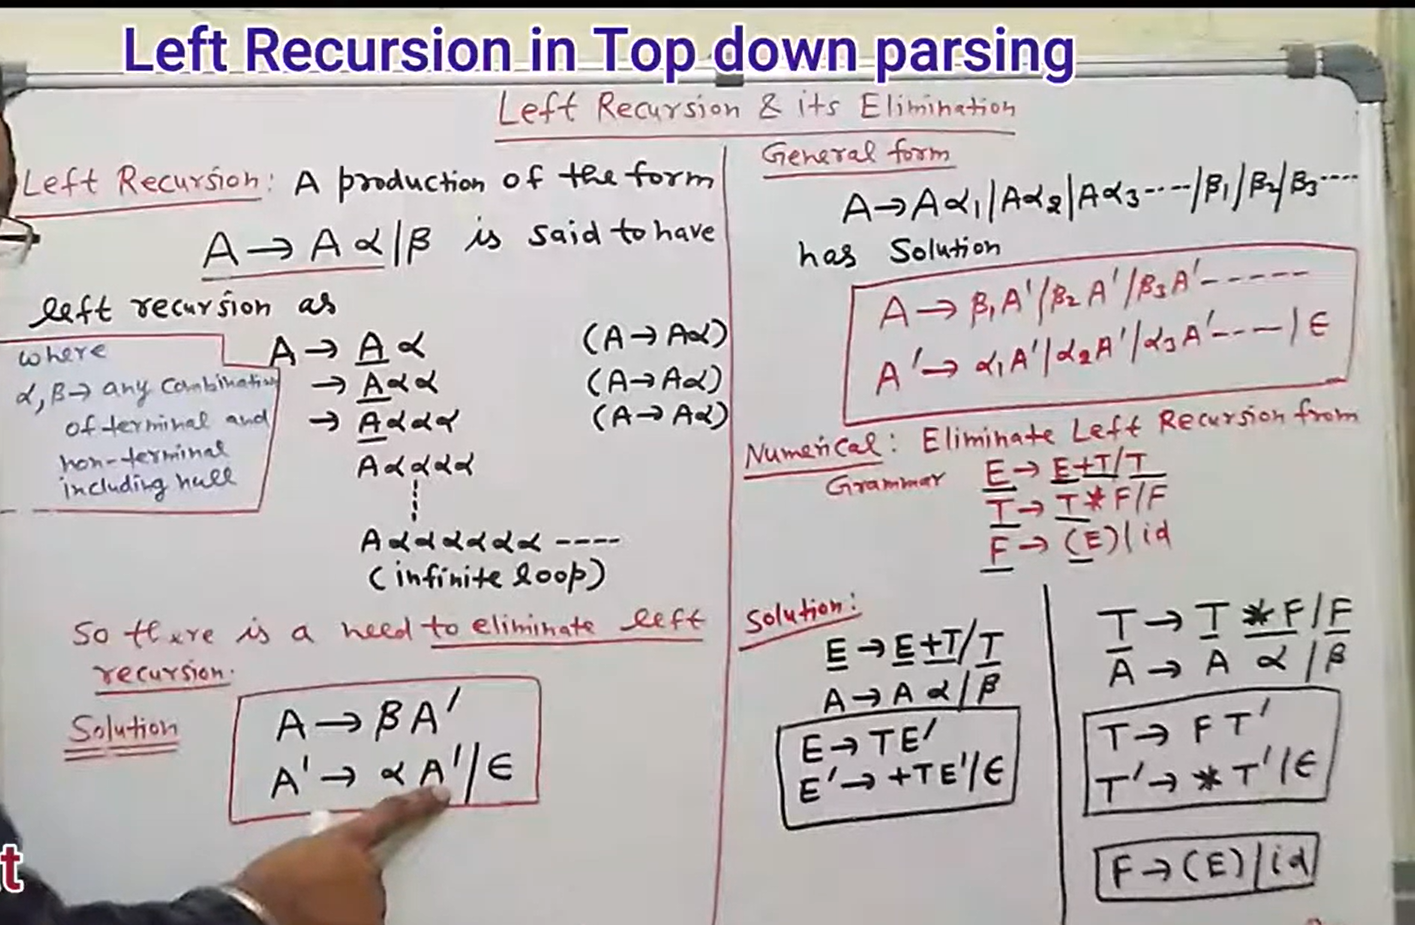 Left Recursion in Top down parsing
Left Recursion & its Elimination
Left Recursion: A production of the form
A → A α | β is said to have
left recursion as
where
α, β → any combination
of terminal and
non-terminal
including null
A → A α (A → Aα)
→ A α α (A → Aα)
→ A α α α (A → Aα)
A α α α α
A α α α α α α ----
(infinite loop)
So there is a need to eliminate left
recursion.
Solution
A → β A'
A' → α A' / ∈
General form
A → A α1 | A α2 | A α3 ---- / β1 / β2 / β3 ----
has Solution
A → β1 A' / β2 A' / β3 A' ------
A' → α1 A' | α2 A' / α3 A' ---- | ∈
Numerical: Eliminate Left Recursion from
Grammar E → E+T / T
T → T * F / F
F → (E) | id
Solution:
E → E+T / T
A → A α / β
E → T E'
E' → +T E' / ∈
T → T * F / F
A → A α / β
T → F T'
T' → * T' / ∈
F → (E) / id
t